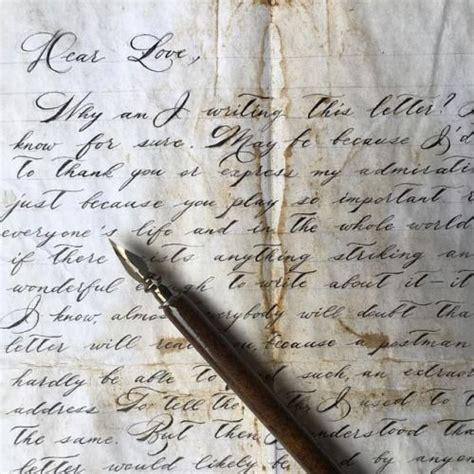 Dear Love,
Why am I writing this letter?
know for sure. May be because I'd
to thank you or express my admirati
just because you play so important
everyone's life and in the whole world
if there exists anything striking an
wonderful enough to write about it-it
I know almost everybody will doubt tha
letter will reach you, because a postman
hardly be able to find such, an extraor
address To tell the this, I used to t
the same. But then I understood tha
letter would likely had by anyon